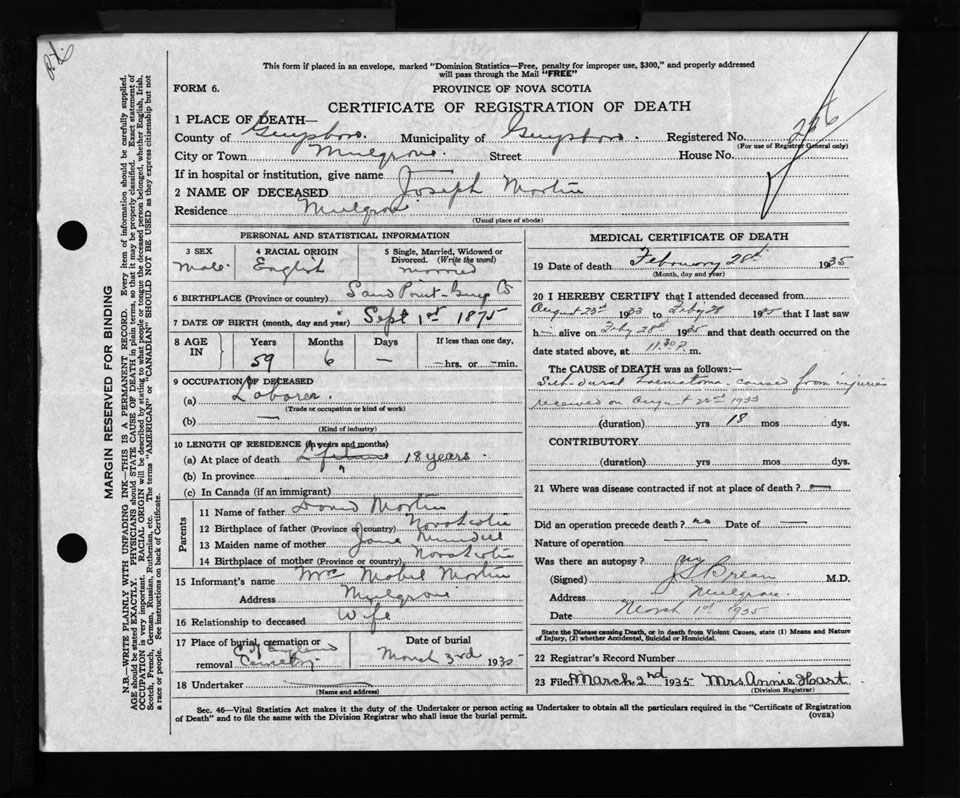 This form if placed in an envelope, marked "Dominion Statistics—Free, penalty for improper use, $300," and properly addressed
will pass through the Mail "FREE"
FORM 6.
PROVINCE OF NOVA SCOTIA
CERTIFICATE OF REGISTRATION OF DEATH
1 PLACE OF DEATH—
County of Guysboro. Municipality of Guysboro. Registered No. 226
(For use of Registrar General only)
City or Town Mulgrave. Street House No.
If in hospital or institution, give name
2 NAME OF DECEASED Joseph Martin
Residence Mulgrave
(Usual place of abode)
PERSONAL AND STATISTICAL INFORMATION
3 SEX Male.
4 RACIAL ORIGIN English
5 Single, Married, Widowed or Divorced. (Write the word) Married
6 BIRTHPLACE (Province or country) Sand Point - Guys Co
7 DATE OF BIRTH (month, day and year) Sept 1st 1875
8 AGE IN Years 59 Months 6 Days — If less than one day, — hrs. or — min.
9 OCCUPATION OF DECEASED
(a) Laborer.
(Trade or occupation or kind of work)
(b) —
(Kind of industry)
10 LENGTH OF RESIDENCE (In years and months)
(a) At place of death Lifetime 18 years.
(b) In province "
(c) In Canada (if an immigrant)
Parents
11 Name of father David Martin
12 Birthplace of father (Province or country) Nova Scotia
13 Maiden name of mother Jane
14 Birthplace of mother (Province or country) Nova Scotia
15 Informant's name Mrs Mabel Martin
Address Mulgrave
16 Relationship to deceased Wife
17 Place of burial, cremation or removal C of England Cemetery
Date of burial March 3rd 1935
18 Undertaker
(Name and address)
MEDICAL CERTIFICATE OF DEATH
19 Date of death February 28th 1935
(Month, day and year)
20 I HEREBY CERTIFY that I attended deceased from
August 23rd 1933 to Feby 28 1935 that I last saw
h— alive on Feby 28th 1935 and that death occurred on
date stated above, at 11.30 P. m.
The CAUSE of DEATH was as follows:—
Sub-dural haematoma - caused from injuries
received on August 22nd 1933
(duration) yrs 18 mos dys.
CONTRIBUTORY
(duration) yrs mos dys.
21 Where was disease contracted if not at place of death? —
Did an operation precede death? no Date of —
Nature of operation —
Was there an autopsy?
(Signed) M.D.
Address Mulgrave
Date March 1st 1935
State the Disease causing Death, or in death from Violent Causes, state (1) Means and Nature
of Injury, (2) whether Accidental, Suicidal or Homicidal.
22 Registrar's Record Number
23 Filed March 2nd 1935 Mrs Annie Hart
(Division Registrar)
Sec. 46—Vital Statistics Act makes it the duty of the Undertaker or person acting as Undertaker to obtain all the particulars required in the "Certificate of Registration
of Death" and to file the same with the Division Registrar who shall issue the burial permit.
(OVER)
MARGIN RESERVED FOR BINDING
N.B.—WRITE PLAINLY WITH UNFADING INK—THIS IS A PERMANENT RECORD. Every item of information should be carefully supplied.
AGE should be stated EXACTLY. PHYSICIANS should STATE CAUSE OF DEATH in plain terms, so that it may be properly classified. Exact statement of
OCCUPATION is very important. RACIAL ORIGIN will be described by stating to what people or tongue the deceased person belonged, whether English, Irish,
Scotch, French, German, Russian, Ruthenian, etc. The terms "AMERICAN" or "CANADIAN" SHOULD NOT BE USED as they express citizenship but not
a race or people. See instructions on back of Certificate.